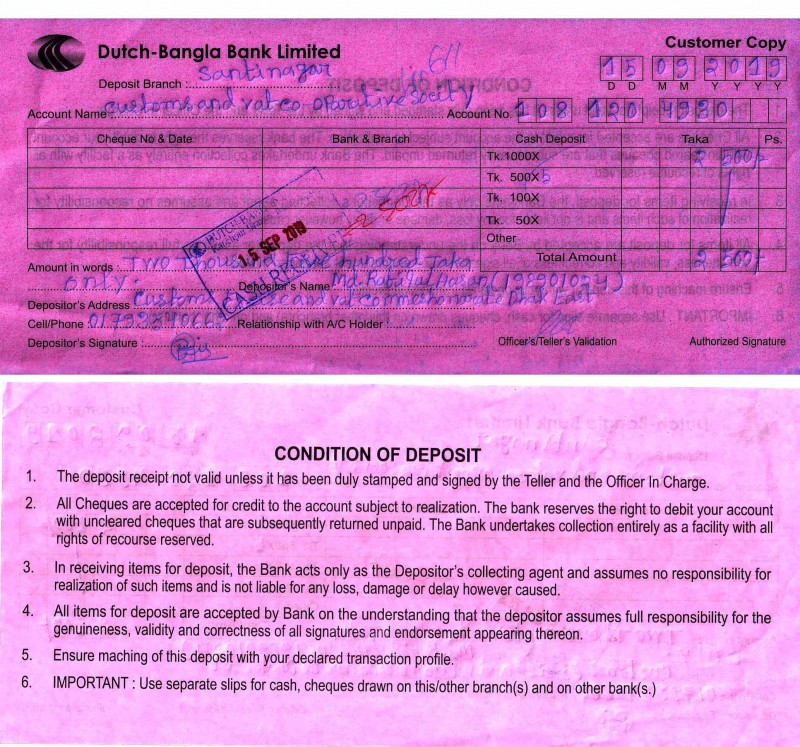 Dutch-Bangla Bank Limited
Customer Copy
Deposit Branch : Santinagar
15 09 2019
D D M M Y Y Y Y
Account Name customs and vat co
Account No. 108 120 4930
Cheque No & Date Bank & Branch Cash Deposit Taka Ps.
Tk. 1000X 2 500/-
Tk. 500X 5
Tk. 100X
Tk. 50X
Other
Total Amount 2 500/-
DUTCH-BANGLA
15 SEP 2019
CASH RECEIVED
Amount in words : Two Thousand five hundred Taka
only.
Depositor's Name Md.
Depositor's Address Customs Excise and vat commissionorate Dhak East
Cell/Phone Relationship with A/C Holder :
Depositor's Signature : Officer's/Teller's Validation Authorized Signature
CONDITION OF DEPOSIT
1. The deposit receipt not valid unless it has been duly stamped and signed by the Teller and the Officer In Charge.
2. All Cheques are accepted for credit to the account subject to realization. The bank reserves the right to debit your account
with uncleared cheques that are subsequently returned unpaid. The Bank undertakes collection entirely as a facility with all
rights of recourse reserved.
3. In receiving items for deposit, the Bank acts only as the Depositor's collecting agent and assumes no responsibility for
realization of such items and is not liable for any loss, damage or delay however caused.
4. All items for deposit are accepted by Bank on the understanding that the depositor assumes full responsibility for the
genuineness, validity and correctness of all signatures and endorsement appearing thereon.
5. Ensure maching of this deposit with your declared transaction profile.
6. IMPORTANT : Use separate slips for cash, cheques drawn on this/other branch(s) and on other bank(s.)